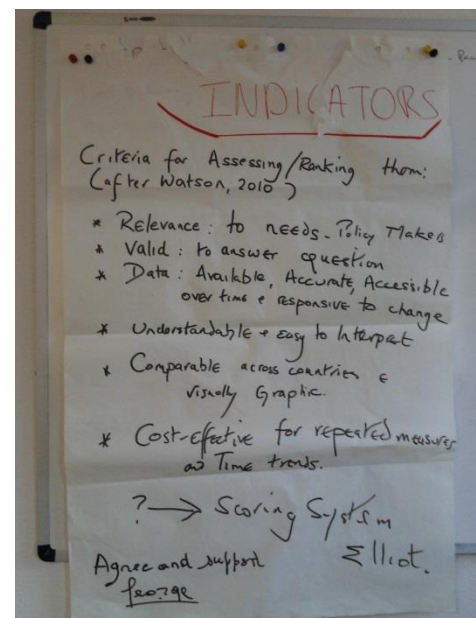 INDICATORS
Criteria for Assessing/Ranking them:
(after Watson, 2010)
* Relevance: to needs - Policy Makers
* Valid: to answer question
* Data: Available, Accurate, Accessible
over time & responsive to change
* Understandable & easy to Interpret
* Comparable across countries &
visually Graphic.
* Cost-effective for repeated measures
and Time trends.
? → Scoring System
Elliot.
Agree and support
George